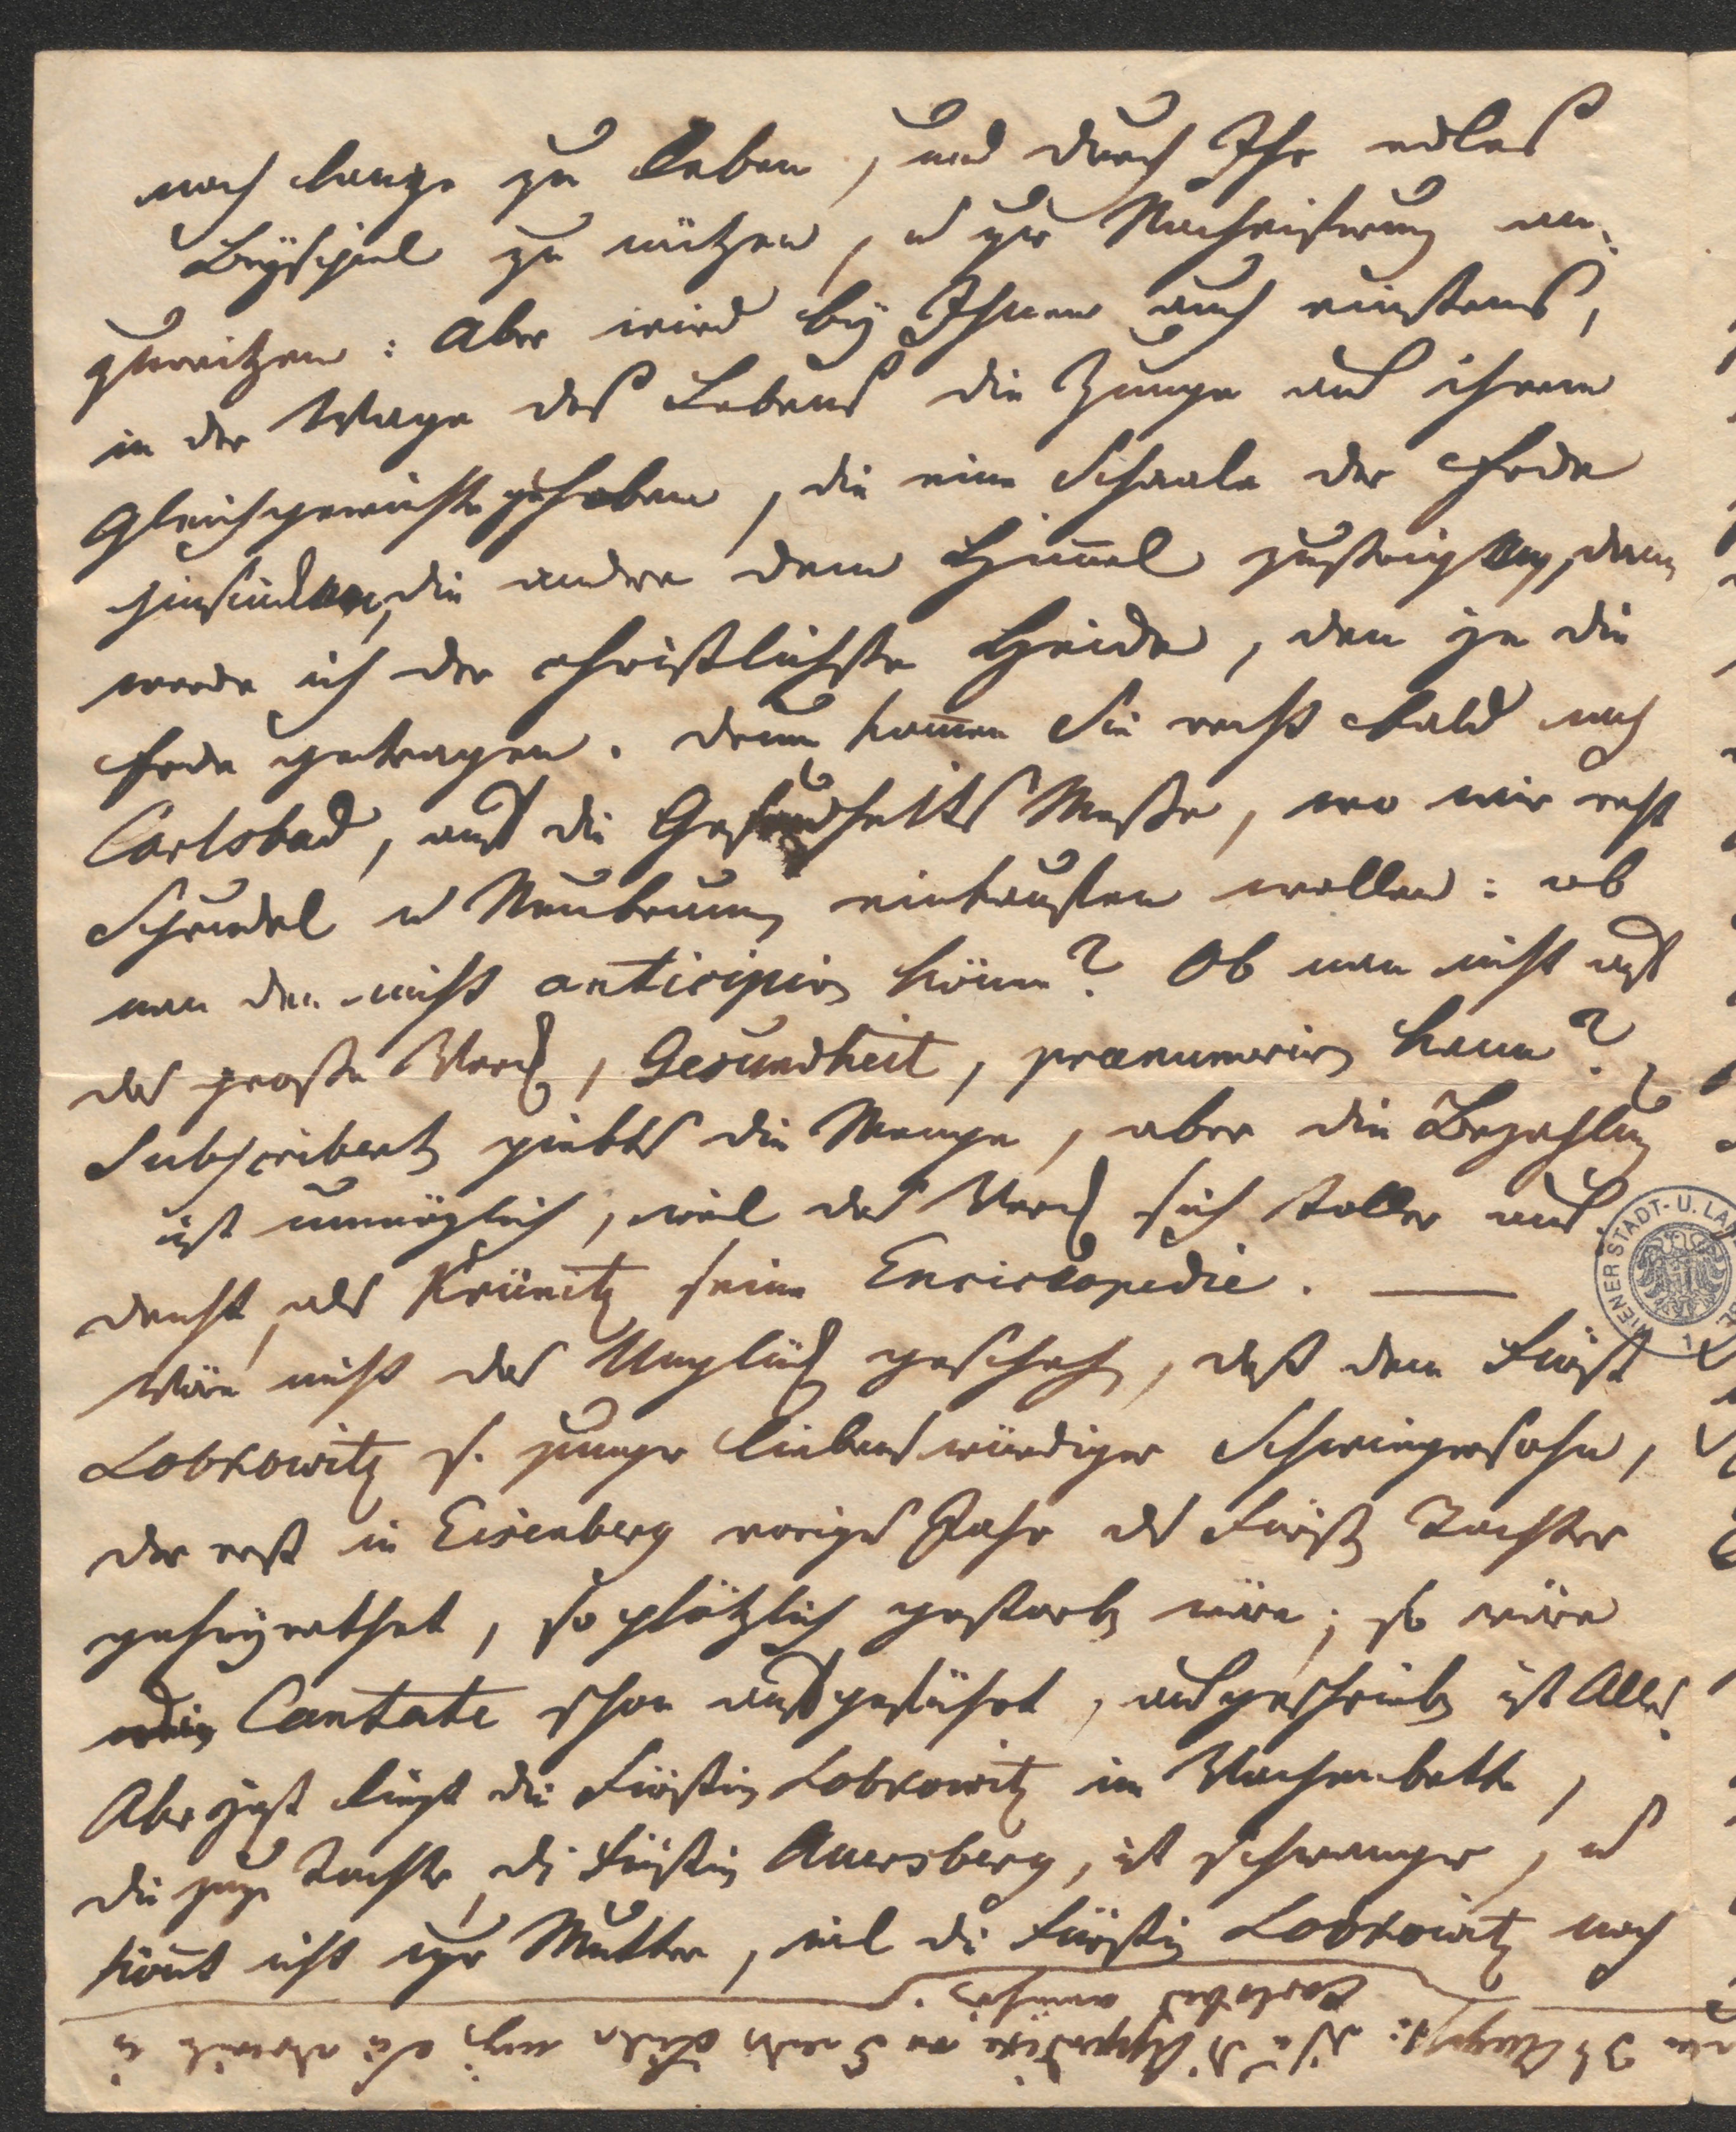 noch lange zu leben, und durch Ihr edles
Beÿspiel zu nützen, u zur Nacheiferung an=
zureitzen: Aber wird beÿ Ihnen auch einstens,
in der Wage des Lebens die Zunge aus ihrem
Gleichgewichte gehoben, die eine Schaale der Erde
hinsinken, die andre dem Himel zusteigen, dann
werde ich der christlichste Heide, den je die
Erde getragen. Denn komen Sie recht bald nach
Carlsbad, auf die Gesundheits Messe, wo wir recht
Sprudel u Neubrunn einkaufen wollen: ob
man den nicht anticipiren könne? Ob man nicht auf
das große Werk, Gesundheit, praenumeriren kann?
Subscribenten giebts die Menge, aber die Bezahlung
ist unmöglich, weil das Werk sich toller aus
denht, als Krünitz seine Encicklopedie. —
Wäre nicht das Unglück geschehen, daß dem Fürst
Lobkowitz s. junger liebenswürdiger Schwiegersohn,
der erst in Eisenberg voriges Jahr des Fürsten Tochter
geheÿrathet, so plötzlich gestorben wäre; so wäre
Cantate schon aufgeführt, ausgeschrieben ist Alles.
Aber jezt liegt die Fürstin Lobkowitz im Wochenbette,
die junge Tochter, die Fürstin Auersberg, ist schwanger, u
komt nicht zur Mutter, weil die Fürstin Lobkowitz noch
Carlsbad